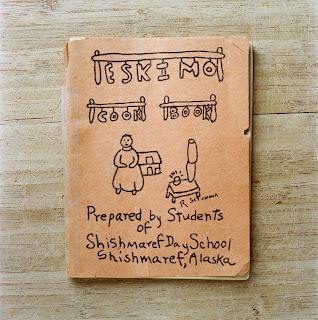 ESKIMO
COOK BOOK
Prepared by Students
of
Shishmaref Day School
Shishmaref, Alaska